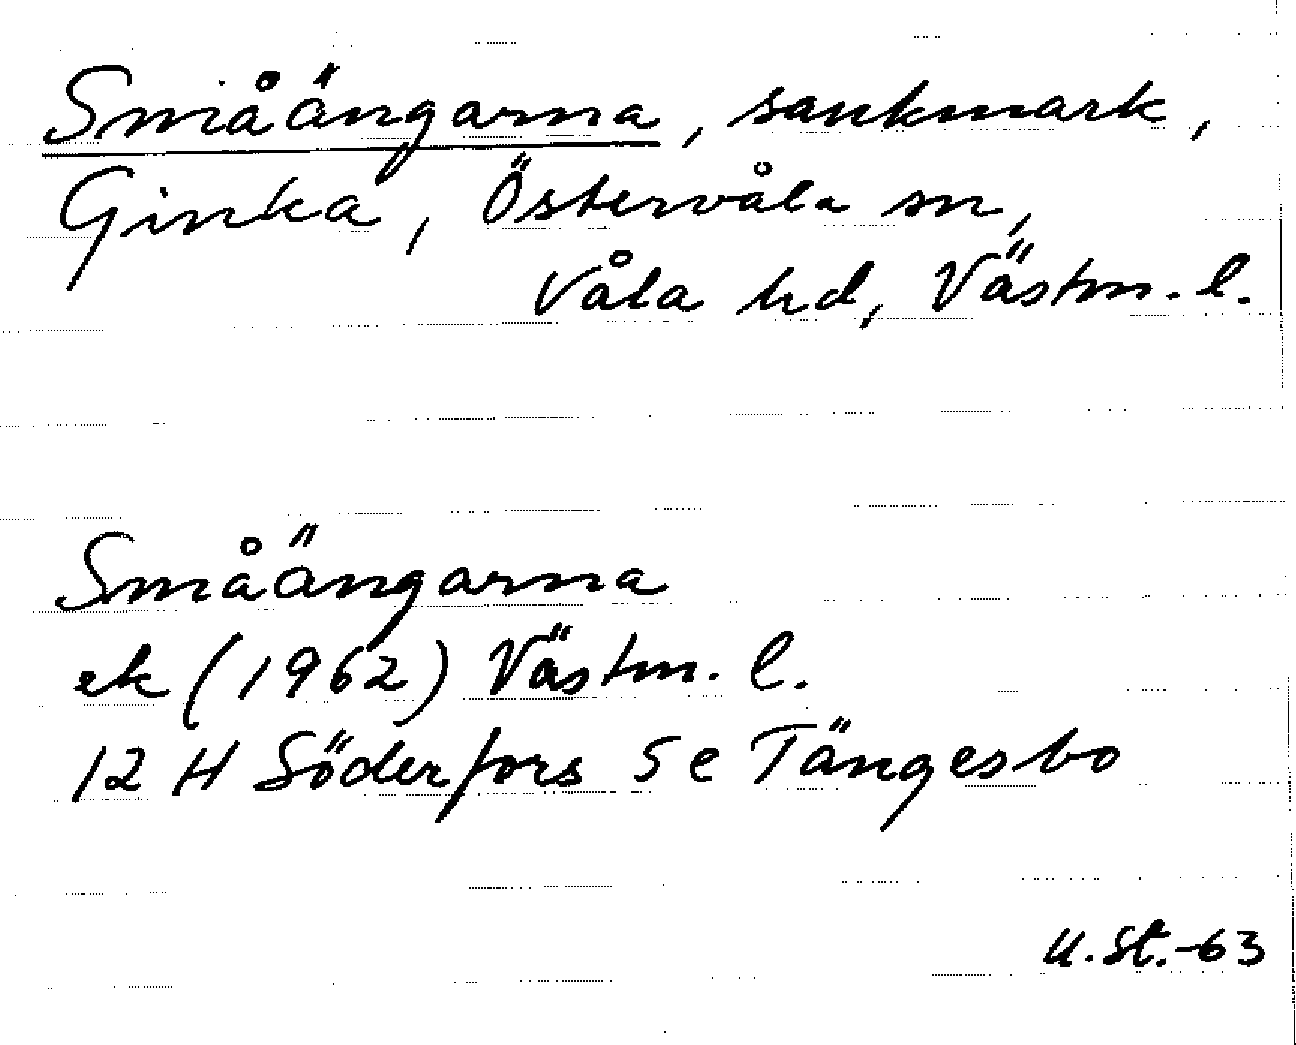 Småängarna, sankmark,
Ginka, Östervåla sn,
Våla hd, Västm. l.
Småängarna
ek (1962) Västm. l.
12 H Söderfors 5 e Tängesbo
U. St. -63